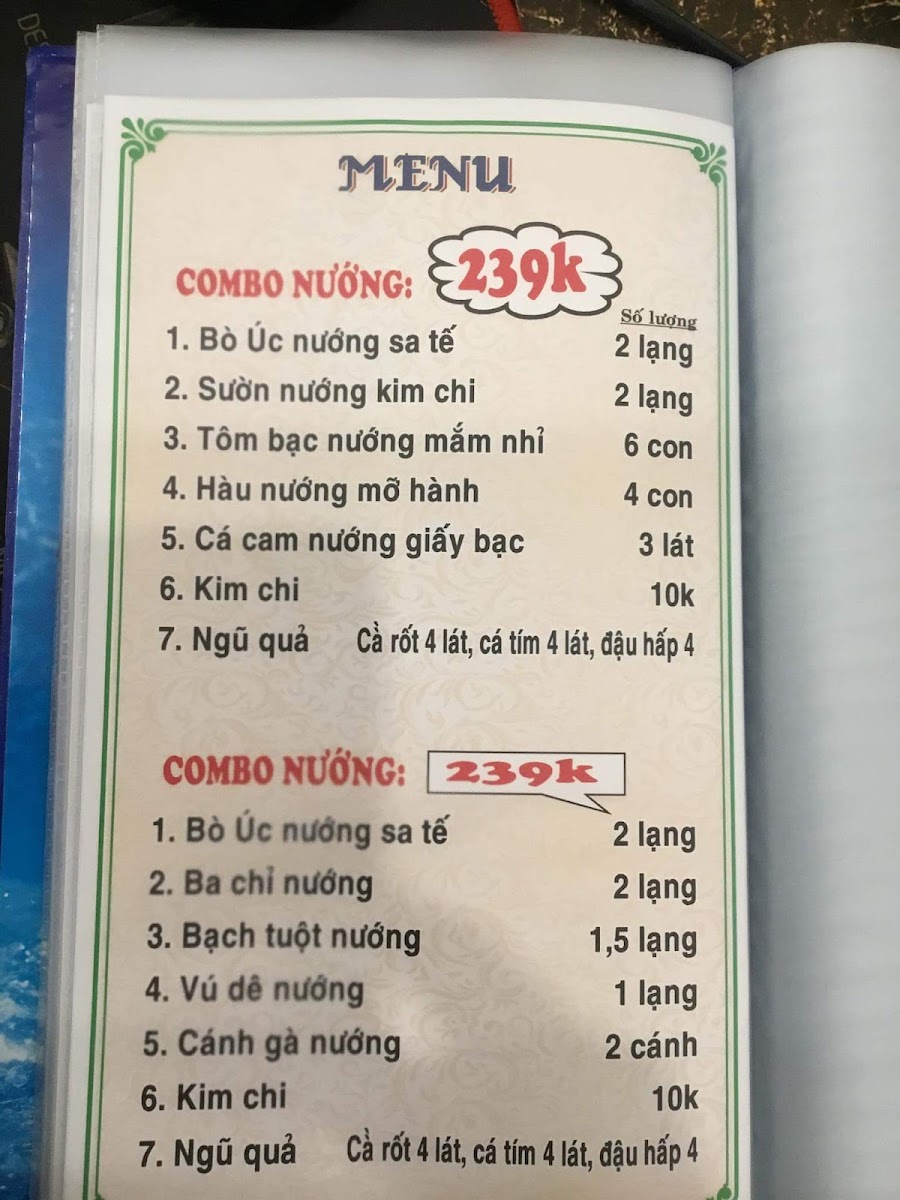 MENU
COMBO NƯỚNG: 239k
Số lượng
1. Bò Úc nướng sa tế 2 lạng
2. Sườn nướng kim chi 2 lạng
3. Tôm bạc nướng mắm nhỉ 6 con
4. Hàu nướng mỡ hành 4 con
5. Cá cam nướng giấy bạc 3 lát
6. Kim chi 10k
7. Ngũ quả Cà rốt 4 lát, cá tím 4 lát, đậu hấp 4
COMBO NƯỚNG: 239k
1. Bò Úc nướng sa tế 2 lạng
2. Ba chỉ nướng 2 lạng
3. Bạch tuột nướng 1,5 lạng
4. Vú dê nướng 1 lạng
5. Cánh gà nướng 2 cánh
6. Kim chi 10k
7. Ngũ quả Cà rốt 4 lát, cá tím 4 lát, đậu hấp 4